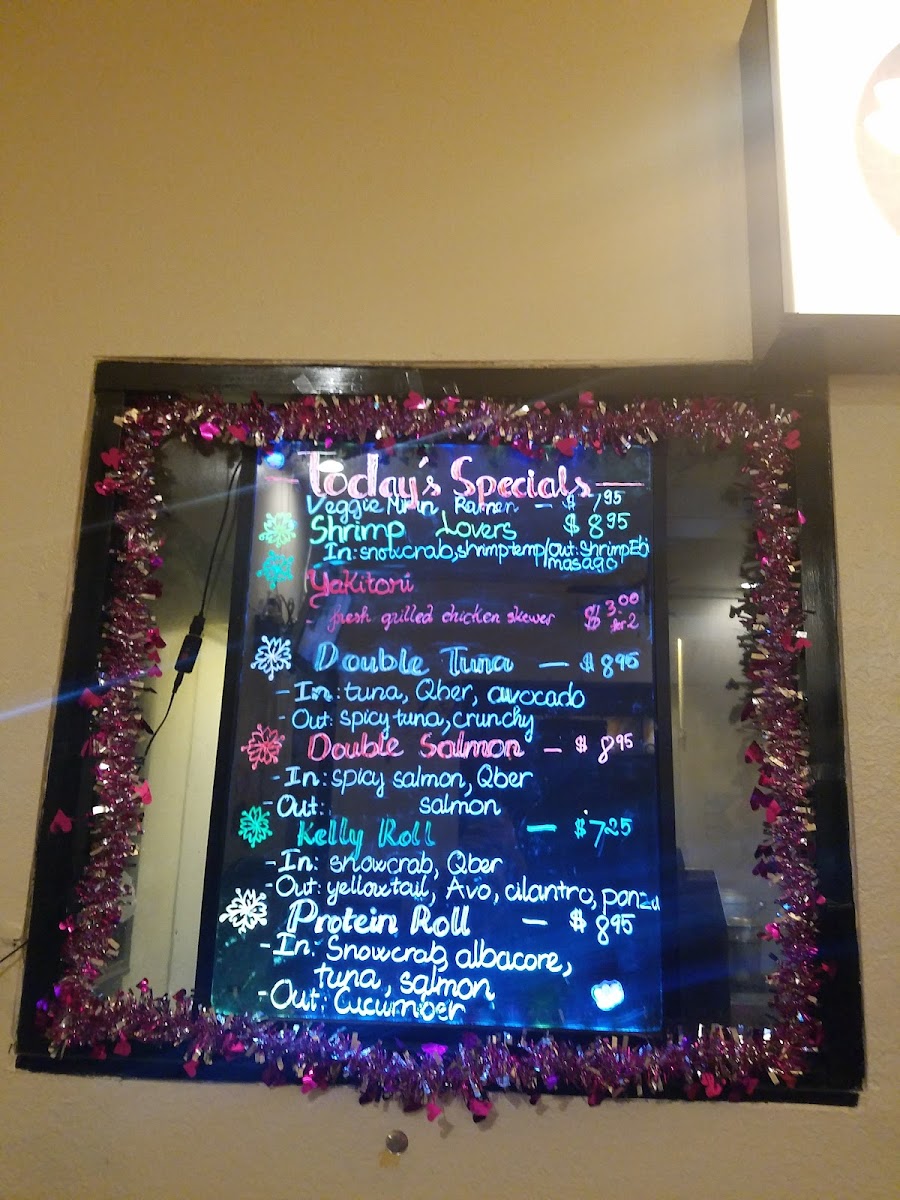 Today's Specials
Veggie Mirin Ramen - $ 7.95
Shrimp Lovers $8.95
In: snowcrab, shrimp temp/Out: Shrimp Ebi
masago
Yakitori
- fresh grilled chicken skewer $3.00
for 2
Double Tuna - $8.95
- In: tuna, Qber, avocado
- Out: spicy tuna, crunchy
Double Salmon - $8.95
- In: spicy salmon, Qber
- Out: salmon
Kelly Roll - $7.25
- In: snowcrab, Qber
- Out: yellowtail, Avo, cilantro, ponzu
Protein Roll - $8.95
- In: Snowcrab, albacore,
tuna, salmon
- Out: Cucumber